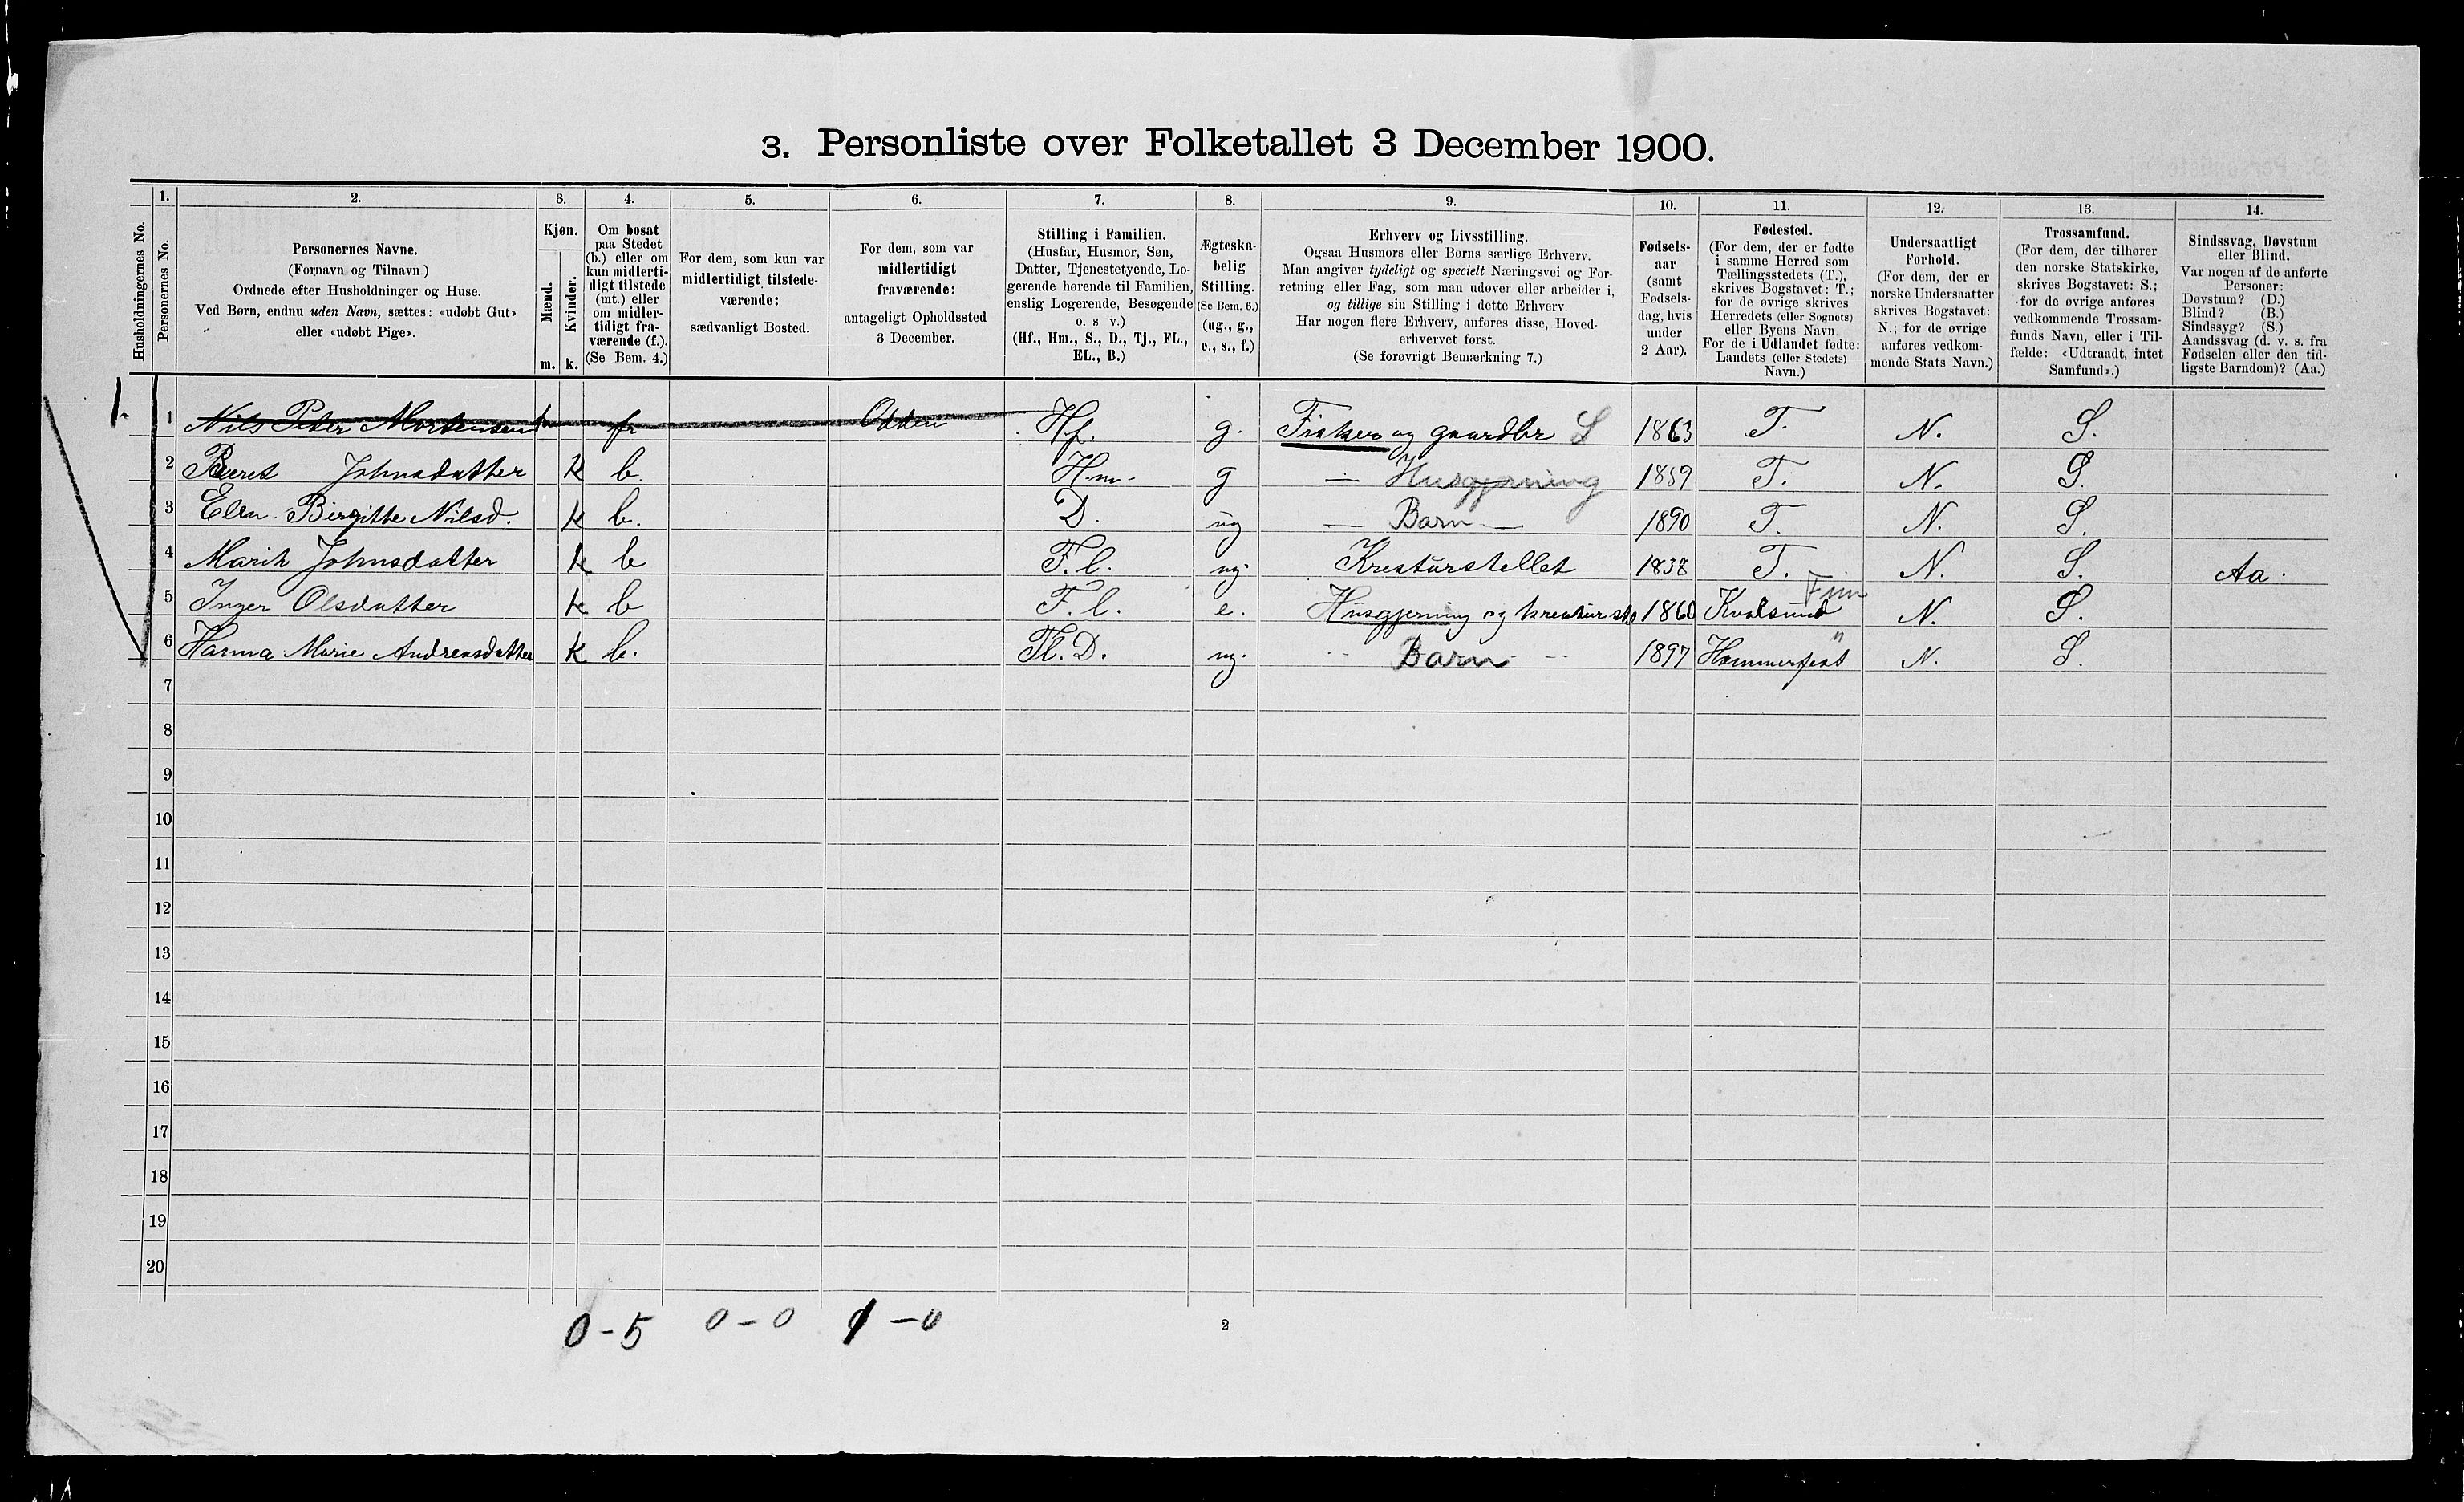 3. Personliste over Folketallet 3 December 1900.
1. 2. 3. 4. 5. 6. 7. 8. 9. 10. 11. 12. 13. 14.
Husholdningernes No.
Personernes No.
Personernes Navne.
(Fornavn og Tilnavn)
Ordnede efter Husholdninger og Huse.
Ved Børn, endnu uden Navn, sættes: «udøbt Gut»
eller «udøbt Pige».
Kjøn.
Mænd.
Kvinder.
m. k.
Om bosat
paa Stedet
(b.) eller om
kun midlerti-
digt tilstede
(mt.) eller
om midler-
tidigt fra-
værende (f.).
(Se Bem. 4.)
For dem, som kun var
midlertidigt tilstede-
værende:
sædvanligt Bosted.
For dem, som var
midlertidigt
fraværende:
antageligt Opholdssted
3 December.
Stilling i Familien.
(Husfar, Husmor, Søn,
Datter, Tjenestetyende, Lo-
gerende hørende til Familien,
enslig Logerende, Besøgende
o. s v.)
(Hf., Hm., S., D., Tj., FL.,
EL., B.)
Ægteska-
belig
Stilling.
(Se Bem. 6.)
(ug., g.,
e., s., f.)
Erhverv og Livsstilling.
Ogsaa Husmors eller Børns særlige Erhverv.
Man angiver tydeligt og specielt Næringsvei og For-
retning eller Fag, som man udøver eller arbeider i,
og tillige sin Stilling i dette Erhverv.
Har nogen flere Erhverv, anføres disse, Hoved-
erhvervet først.
(Se forøvrigt Bemærkning 7.)
Fødsels-
aar
(samt
Fødsels-
dag, hvis
under
2 Aar).
Fødested.
(For dem, der er fødte
i samme Herred som
Tællingsstedets (T.),
skrives Bogstavet: T.;
for de øvrige skrives
Herredets (eller Sognets)
eller Byens Navn
For de i Udlandet fødte:
Landets (eller Stedets)
Navn.)
Undersaatligt
Forhold.
(For dem, der er
norske Undersaatter
skrives Bogstavet:
N.; for de øvrige
anføres vedkom-
mende Stats Navn.)
Trossamfund.
(For dem, der tilhører
den norske Statskirke,
skrives Bogstavet: S.;
for de øvrige anføres
vedkommende Trossam-
funds Navn, eller i Til-
fælde: «Udtraadt, intet
Samfund».)
Sindssvag, Døvstum
eller Blind.
Var nogen af de anførte
Personer:
Døvstum? (D.)
Blind? (B.)
Sindssyg? (S.)
Aandssvag (d. v. s. fra
Fødselen eller den tid-
ligste Barndom)? (Aa.)
1. 1 Nils Peter Mortensen fr Odden Hf. g. Fisker og gaardbr S 1863 T. N. S.
2 Beret Johnsdatter k b. Hm. g — Husgjerning 1859 T. N. S.
3 Elen Birgitte Nilsd. k b. D. ug — Barn — 1890 T. N. S.
4 Marih Johnsdatter k b F. l. ug. Kreaturstellet 1838 T. N. S. Aa.
5 Inger Olsdatter k b F. l. e. Husgjerning og kreaturst. 1860 Kvalsund Finn N. S.
6 Hanna Marie Andreasdatter k b. Fl. D. ug. Barn 1897 Hammerfest " N. S.
7
8
9
10
11
12
13
14
15
16
17
18
19
20
0-5 0-0 1-0 2